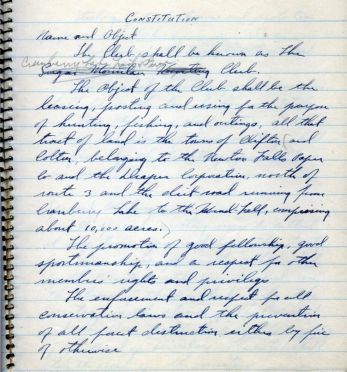 CONSTITUTION
Name and Object
The Club shall be known as the
Cranberry Lake
Sugar Mountain Hunting Club.
The Object of the Club shall be the
leasing, posting and using for the purpose
of hunting, fishing, and outings, all that
tract of land in the towns of Clifton (and
Colton, belonging to the Newton Falls Paper
Co and the Draper Corporation, north of
route 3 and the dirt road running from
Cranberry Lake to the, comprising
about 10,000 acres.)
The promotion of good fellowship, good
sportsmanship, and a respect for other
members rights and privileges
The enforcement and respect for all
conservation laws and the prevention
of all forest destruction either by fire
or otherwise